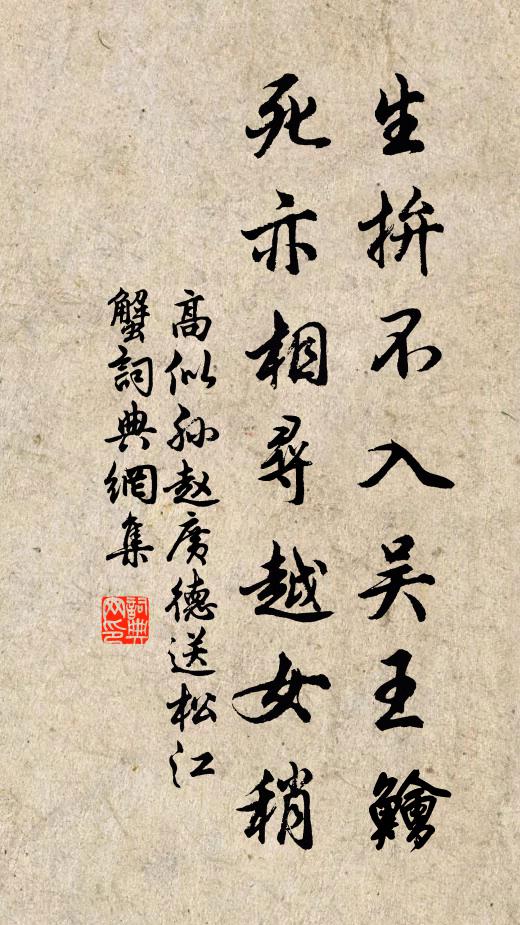 生拚不入吴王鱠
死亦相尋越女稍
高似孙赵廣德送松江
蟹詞典網集
詞典网印